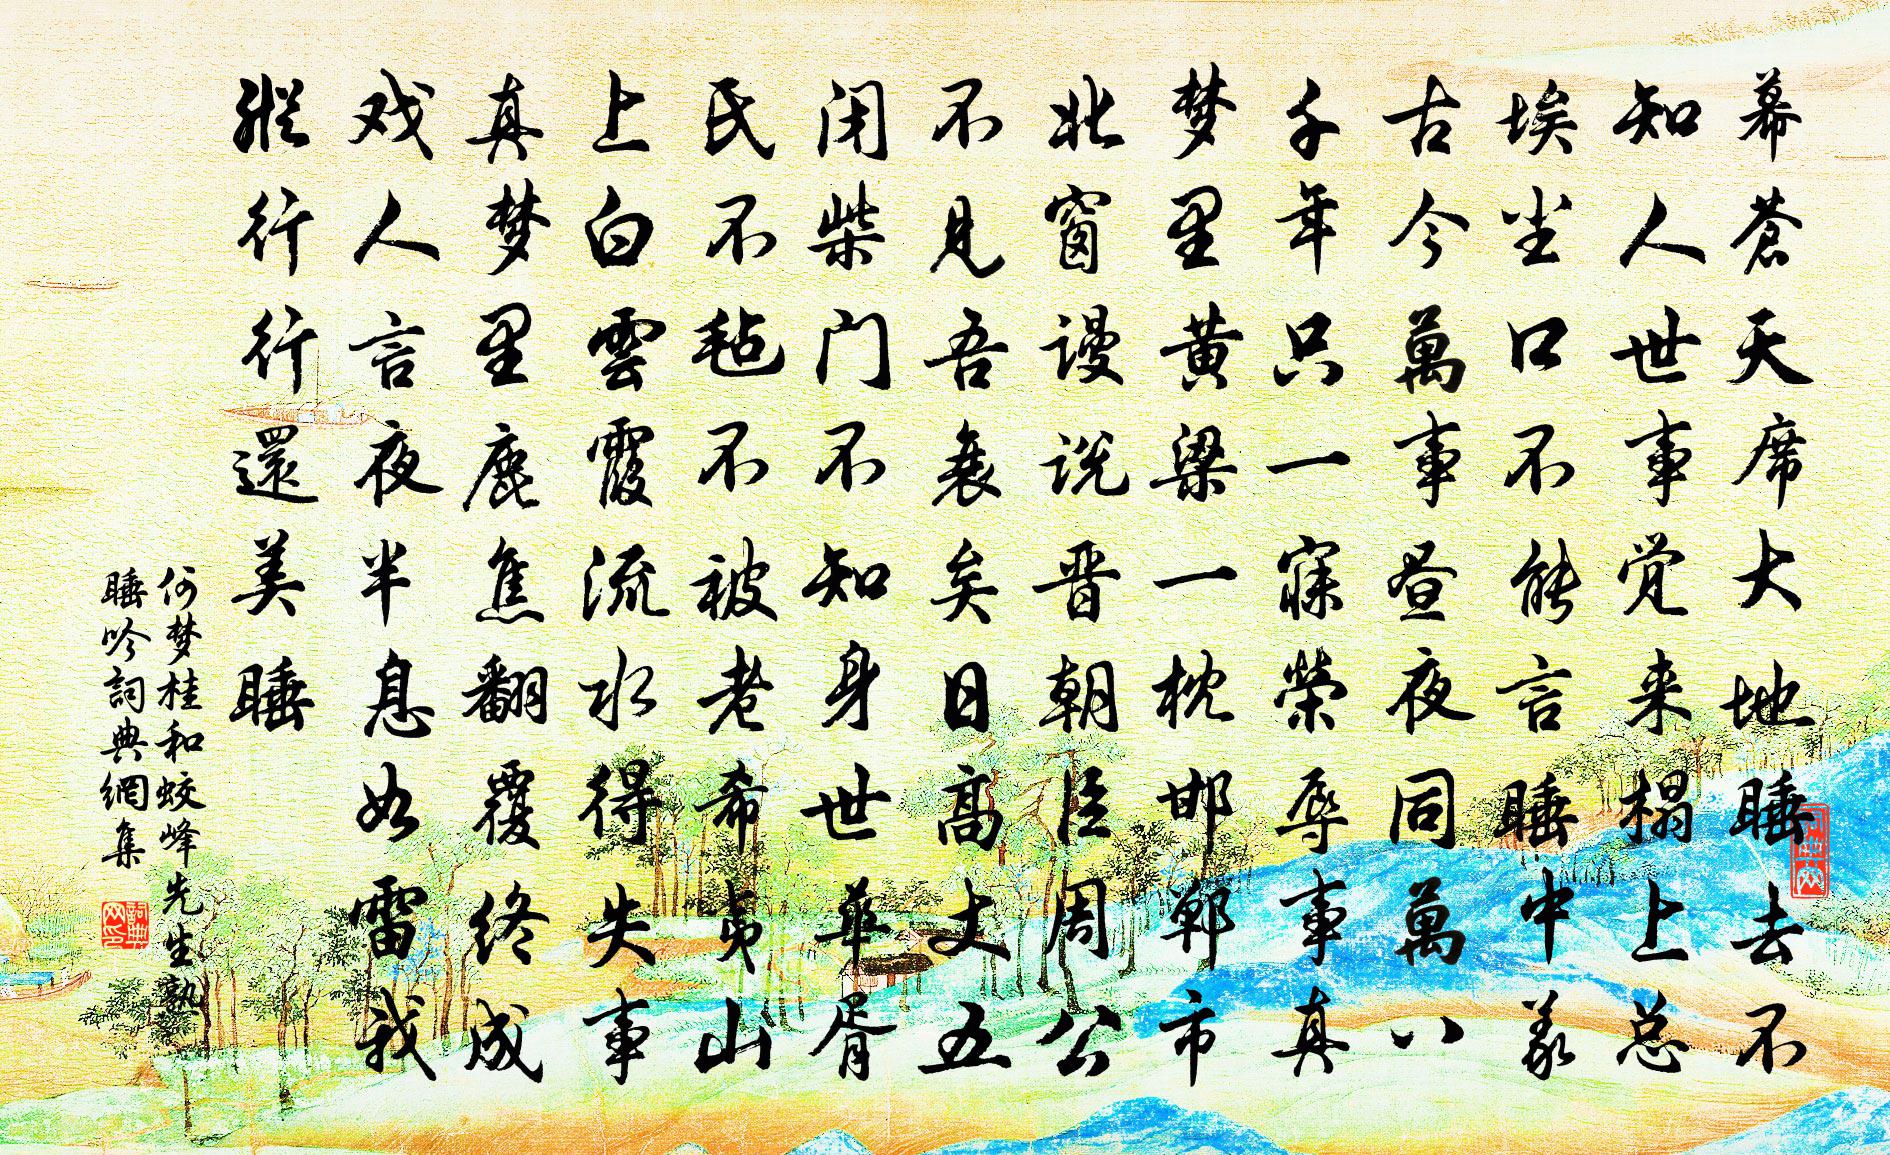 幕蒼天席大地睡去不
知人世事觉来榻上总
埃尘口不能言睡中義
古今萬事昼夜同萬八
千年只一寐榮辱事真
梦里黄梁一枕邯郸市
北窗谩说晋朝臣周公
不见吾衰矣日高丈五
闭柴门不知身世華胥
氏不毡不被老希夷山
上白雲霞流水得失事
真梦里鹿焦翻覆终成
戏人言夜半息如雷我
縱行行還美睡
何梦桂和蛟峰先生熟
睡吟詞典網集